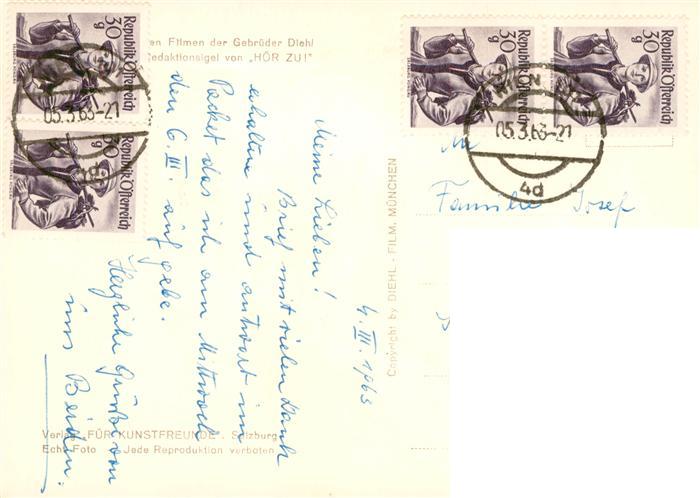 en Filmen der Gebrüder Diehl
Redaktionsigel von „HÖR ZU!"
4. III. 1963
Meine Lieben!
Brief mit vielen Dank
erhalten und antwort im
Packet das ich am Mittwoch
den 6. III. aufgebe.
Herzliche Grüße von
uns Beiden.
Verlag „FÜR KUNSTFREUNDE", Salzburg
Echt Foto Jede Reproduktion verboten
Copyright by DIEHL-FILM, MÜNCHEN
An
Familie Josef
Republik Österreich
30 g
Republik Österreich
30 g
Republik Österreich
30 g
Republik Österreich
30 g
05.3.63-21
05.3.63-21
4d